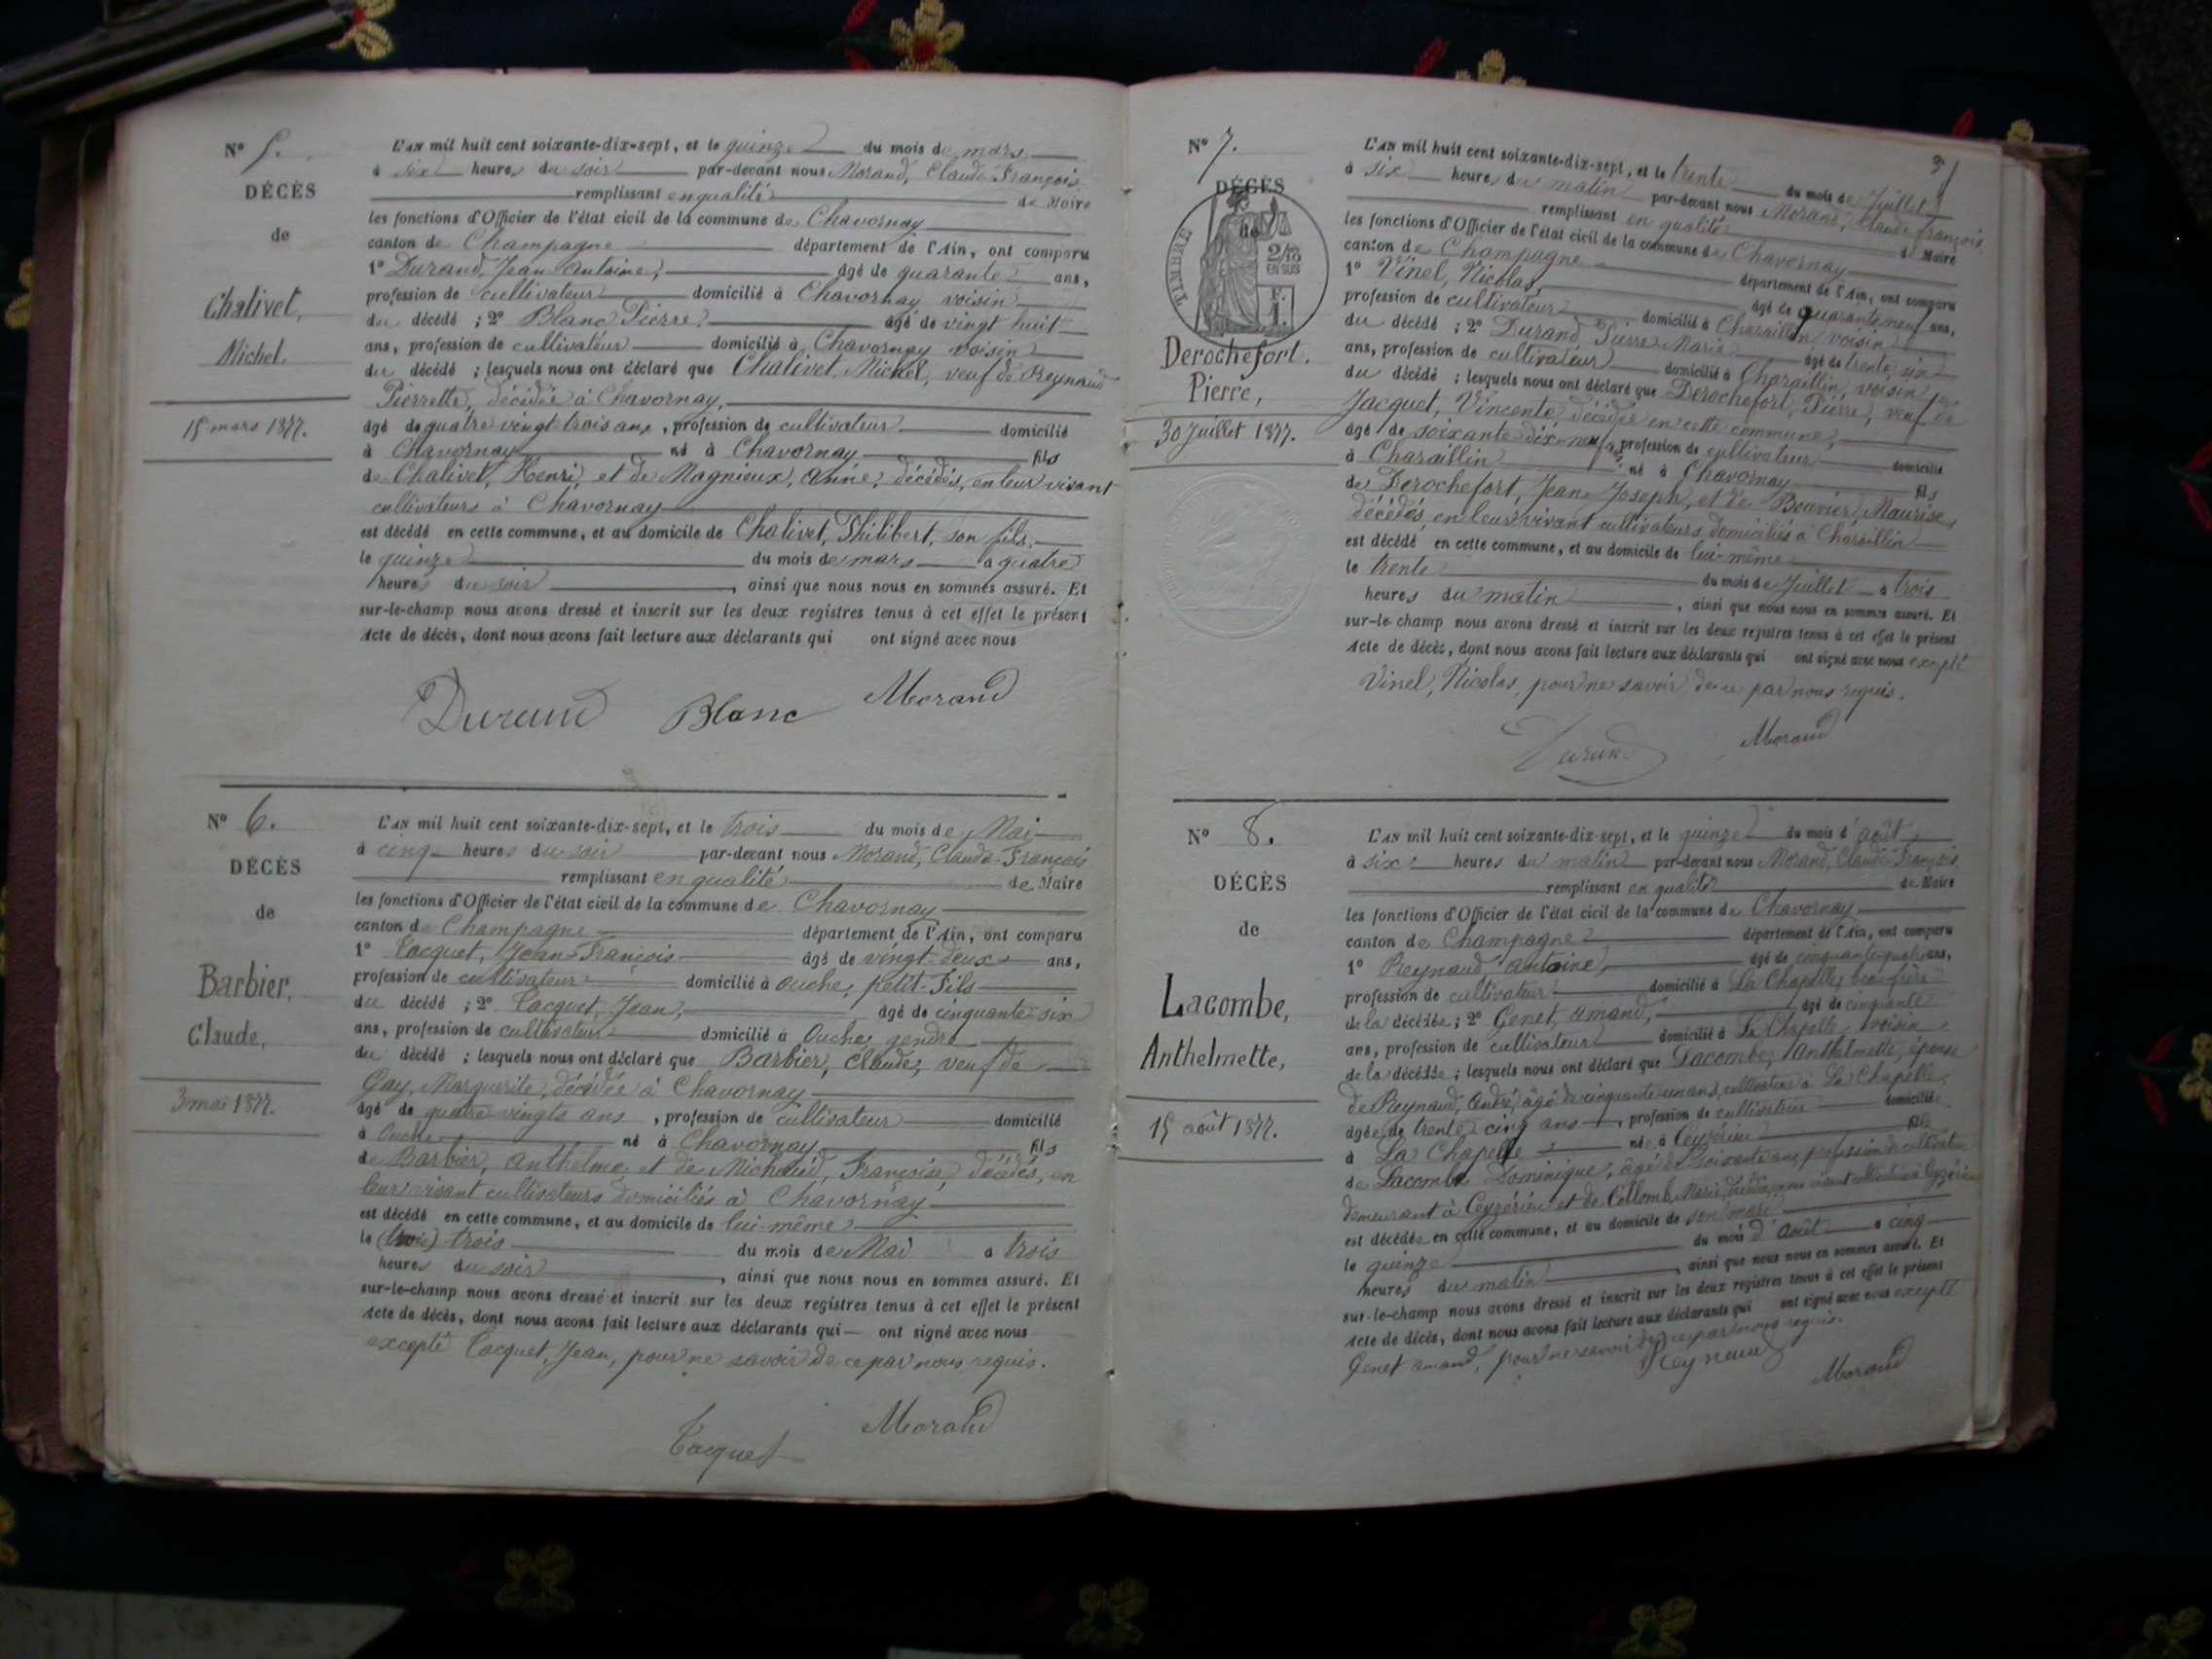 N° 5.
DÉCÈS
de
Chalivet,
Michel.
15 mars 1877.
L'AN mil huit cent soixante-dix-sept, et le quinze du mois de mars
à six heures du soir par-devant nous Morand, Claude-François
remplissant en qualité de Maire
les fonctions d'Officier de l'état civil de la commune de Chavornay
canton de Champagne département de l'Ain, ont comparu
1° Durand, Jean Antoine, âgé de quarante ans,
profession de cultivateur domicilié à Chavornay voisin
du décédé ; 2° Blanc Pierre âgé de vingt huit
ans, profession de cultivateur domicilié à Chavornay voisin
du décédé ; lesquels nous ont déclaré que Chalivet, Michel, veuf de Reynaud
Pierrette, décédée à Chavornay,
âgé de quatre vingt trois ans, profession de cultivateur domicilié
à Chavornay né à Chavornay fils
de Chalivet, Henri, et de Magnieux, Anne, décédés, en leur vivant
cultivateurs à Chavornay
est décédé en cette commune, et au domicile de Chalivet, Philibert, son fils,
le quinze du mois de mars à quatre
heures du soir, ainsi que nous nous en sommes assuré. Et
sur-le-champ nous avons dressé et inscrit sur les deux registres tenus à cet effet le présent
Acte de décès, dont nous avons fait lecture aux déclarants qui ont signé avec nous
Durand Blanc Morand
N° 6.
DÉCÈS
de
Barbier,
Claude,
3 mai 1877.
L'AN mil huit cent soixante-dix-sept, et le trois du mois de Mai
à cinq heures du soir par-devant nous Morand, Claude-François
remplissant en qualité de Maire
les fonctions d'Officier de l'état civil de la commune de Chavornay
canton de Champagne département de l'Ain, ont comparu
1° Cacquet, Jean-François âgé de vingt-deux ans,
profession de cultivateur domicilié à Ouche, petit-fils
du décédé ; 2° Cacquet, Jean, âgé de cinquante-six
ans, profession de cultivateur domicilié à Ouche, gendre
du décédé ; lesquels nous ont déclaré que Barbier, Claude, veuf de
Gay, Marguerite, décédée à Chavornay
âgé de quatre vingts ans, profession de cultivateur domicilié
à Ouche né à Chavornay fils
de Barbier, Anthelme et de Michaud, Françoise, décédés, en
leur vivant cultivateurs domiciliés à Chavornay
est décédé en cette commune, et au domicile de lui-même
le (trois) trois du mois de Mai à trois
heures du soir, ainsi que nous nous en sommes assuré. Et
sur-le-champ nous avons dressé et inscrit sur les deux registres tenus à cet effet le présent
Acte de décès, dont nous avons fait lecture aux déclarants qui — ont signé avec nous
excepté Cacquet, Jean, pour ne savoir de ce par nous requis.
Cacquet Morand
N° 7.
DÉCÈS
de
TIMBRE
2/10
EN SUS
F.
1.
Derochefort.
Pierre,
30 Juillet 1877.
L'AN mil huit cent soixante-dix-sept, et le trente du mois de Juillet
à six heures du matin par-devant nous Morand, Claude François
remplissant en qualité de Maire
les fonctions d'Officier de l'état civil de la commune de Chavornay
canton de Champagne département de l'Ain, ont comparu
1° Vinel, Nicolas, âgé de quarante neuf ans,
profession de cultivateur domicilié à Charaillin, voisin
du décédé ; 2° Durand, Pierre Marie âgé de trente six
ans, profession de cultivateur domicilié à Charaillin voisin
du décédé ; lesquels nous ont déclaré que Derochefort, Pierre, veuf de
Jacquet, Vincente décédée en cette commune,
âgé de soixante dix-neuf a, profession de cultivateur domicilié
à Charaillin né à Chavornay fils
de Derochefort, Jean Joseph, et de Bouvier, Maurise,
décédés, en leur vivant cultivateurs domiciliés à Charaillin
est décédé en cette commune, et au domicile de lui-même
le trente du mois de Juillet à trois
heures du matin, ainsi que nous nous en sommes assuré. Et
sur-le-champ nous avons dressé et inscrit sur les deux registres tenus à cet effet le présent
Acte de décès, dont nous avons fait lecture aux déclarants qui ont signé avec nous excepté
Vinel, Nicolas, pour ne savoir de ce par nous requis.
Durand Morand
N° 8.
DÉCÈS
de
Lacombe,
Anthelmette,
15 août 1877.
L'AN mil huit cent soixante-dix-sept, et le quinze du mois d'août
à six heures du matin par-devant nous Morand, Claude-François
remplissant en qualité de Maire
les fonctions d'Officier de l'état civil de la commune de Chavornay
canton de Champagne département de l'Ain, ont comparu
1° Reynaud Antoine, âgé de cinquante-quatre ans,
profession de cultivateur domicilié à La Chapelle, beau-frère
de la décédée ; 2° Genet, Amand, âgé de cinquante
ans, profession de cultivateur domicilié à La Chapelle voisin
de la décédée ; lesquels nous ont déclaré que Lacombe, Anthelmette, épouse
de Reynaud, André, âgé de cinquante un ans, cultivateur à La Chapelle,
âgée de trente cinq ans, profession de cultivatrice domiciliée
à La Chapelle née à Ceyzérieu fille
de Lacombe Dominique, âgé de soixante ans, profession de cultivateur
demeurant à Ceyzérieu et de Collomb, Marie,
est décédée en cette commune, et au domicile de son mari
le quinze du mois d'août à cinq
heures du matin, ainsi que nous nous en sommes assuré. Et
sur-le-champ nous avons dressé et inscrit sur les deux registres tenus à cet effet le présent
Acte de décès, dont nous avons fait lecture aux déclarants qui ont signé avec nous excepté
Genet Amand, pour ne savoir de ce par nous requis.
Reynaud Morand